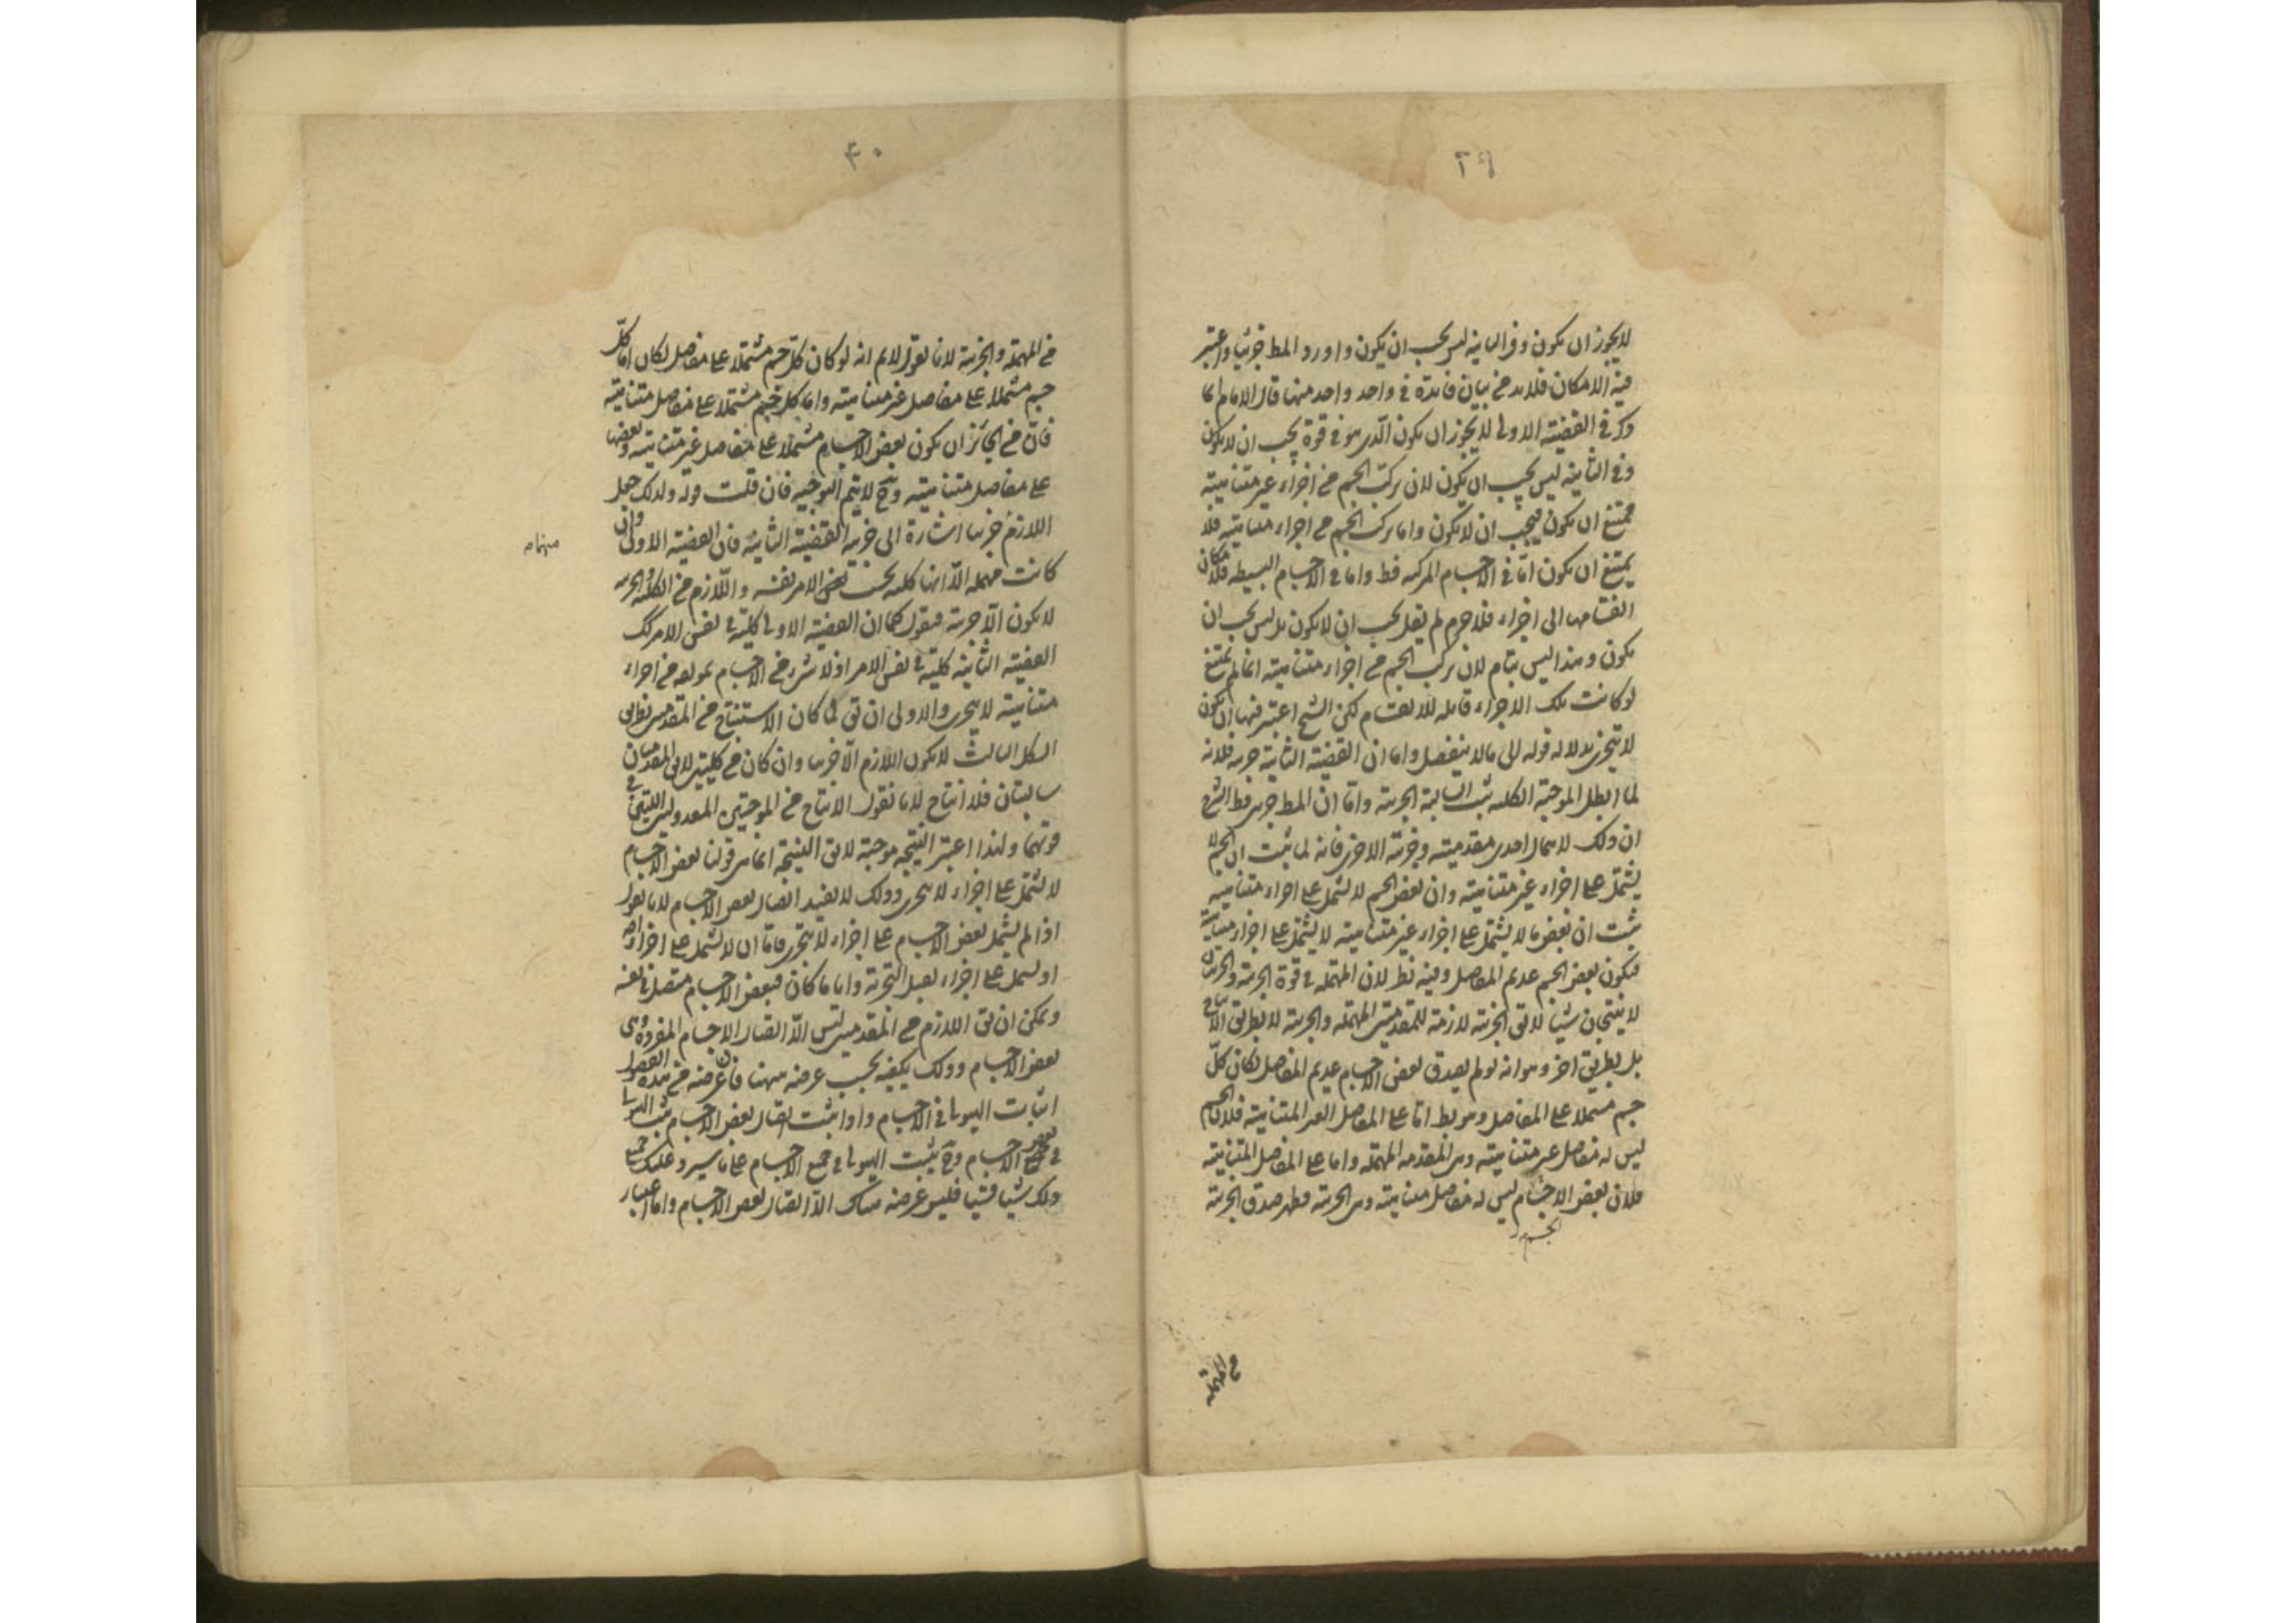 ٣٩
لا يجوز ان يكون وفى الثانية ليس يجب ان يكون واورد المط جزئيا واعتبر
فيه الامكان فلا بد من بيان فائدة فى واحد واحد منها قال الامام انما
ذكر فى القضية الاولى لا يجوز ان يكون الذى هو فى قوة يجب ان لا يكون
وفى الثانية ليس يجب ان يكون لان تركب الجسم من اجزاء غير متناهية
ممتنع ان يكون فيجب ان لا يكون واما تركب الجسم من اجزاء متناهية فلا
يمتنع ان يكون اما فى الاجسام المركبه فظ واما فى الاجسام البسيطه فلامكان
انقسامها الى اجزاء فلا جرم لم يقل يجب ان لا يكون بل ليس يجب ان
يكون وهذا ليس بتام لان تركب الجسم من اجزاء متناهية انما لم يمتنع
لو كانت تلك الاجزاء قابله للانقسام لكن الشيخ اعتبر فيها ان يكون
لا تتجزى بدلاله قوله الى مالا ينفصل واما ان القضية الثانية جزئيه فلانه
لما ابطل الموجبة الكليه ثبت السالبة الجزئية واما ان المط جزئى فظ
ان ذلك لاهمال احدى مقدمتيه وجزئية الاخرى فانه لما ثبت ان الجسم لا
يشتمل على اجزاء غير متناهية وان بعض الجسم لا يشتمل على اجزاء متناهية
ثبت ان بعض ما لا يشتمل على اجزاء غير متناهية لا يشتمل على اجزاء متناهية
فيكون بعض الجسم عديم المفاصل وفيه نظر لان المهمله فى قوة الجزئية والجزئيتان
لا ينتجان شيئا لا يق الجزئية لازمة للمقدمتين المهمله والجزئية لا بطريق الانتاج
بل بطريق اخر وهو انه لو لم يصدق بعض الاجسام عديم المفاصل لكان كل
جسم مشتملا على المفاصل وهو بط اما على المفاصل الغير المتناهية فلان الجسم
ليس له مفاصل غير متناهية وهى المقدمه المهمله واما على المفاصل المتناهية
فلان بعض الاجسام ليس له مفاصل متناهية وهى الجزئية فظهر صدق الجزئية
من المهملة
٤٠
من المهمله والجزئية لانا نقول لا نم انه لو كان كل جسم مشتملا على مفاصل لكان اما كل
جسم مشتملا على مفاصل غير متناهية واما كل جسم مشتملا على مفاصل متناهية
فان من الجائز ان يكون بعض الاجسام مشتملا على مفاصل غير متناهية وبعضها
على مفاصل متناهية وح لا يتم التوجيه فان قلت قوله ولذلك جعل
اللازم جزئيا اشارة الى جزئية القضية الثانية فان القضية الاولى وان
كانت مهمله الا انها كليه بحسب نفس الامر نفسه واللازم من الكليه والجزئيه
لا يكون الا جزئية فنقول كما ان القضية الاولى كلية فى نفس الامر كك
القضية الثانية كلية فى نفس الامر اذ لا شىء من الاجسام بمؤلفه من اجزاء
متناهية لا يتجزى والاولى ان يق لما كان الاستنتاج من المقدمتين بطريق
الشكل الثالث لا يكون اللازم الا جزئيا وان كان من كليتين لا يق المقدمتان
سالبتان فلا انتاج لانا نقول الانتاج من الموجبتين المعدولتين اللتين فى
قوتهما ولهذا اعتبر النتيجه موجبة لا يق النتيجة انما هى قولنا بعض الاجسام
لا يشتمل على اجزاء لا يتجزى وذلك لا يفيد اتصال بعض الاجسام لانا نقول
اذا لم يشتمل بعض الاجسام على اجزاء لا يتجزى فاما ان لا يشتمل على اجزاء اصلا
او يشتمل على اجزاء يقبل التجزئة واياما كان فبعض الاجسام متصل فى نفسه
ويمكن ان يق اللازم من المقدمتين ليس الا اتصال الاجسام المفردة وهى
بعض الاجسام وذلك يكفيه بحسب غرضه ههنا فان غرضه من هذه الفصول
اثبات الهيولى فى الاجسام واذا ثبت اتصال بعض الاجسام ثبت الهيولى
فى بعض الاجسام وح يثبت الهيولى فى جميع الاجسام على ما سيرد عليك جميع
ذلك شيئا فشيئا فليس غرضه هناك الا اتصال بعض الاجسام واما اعتبار